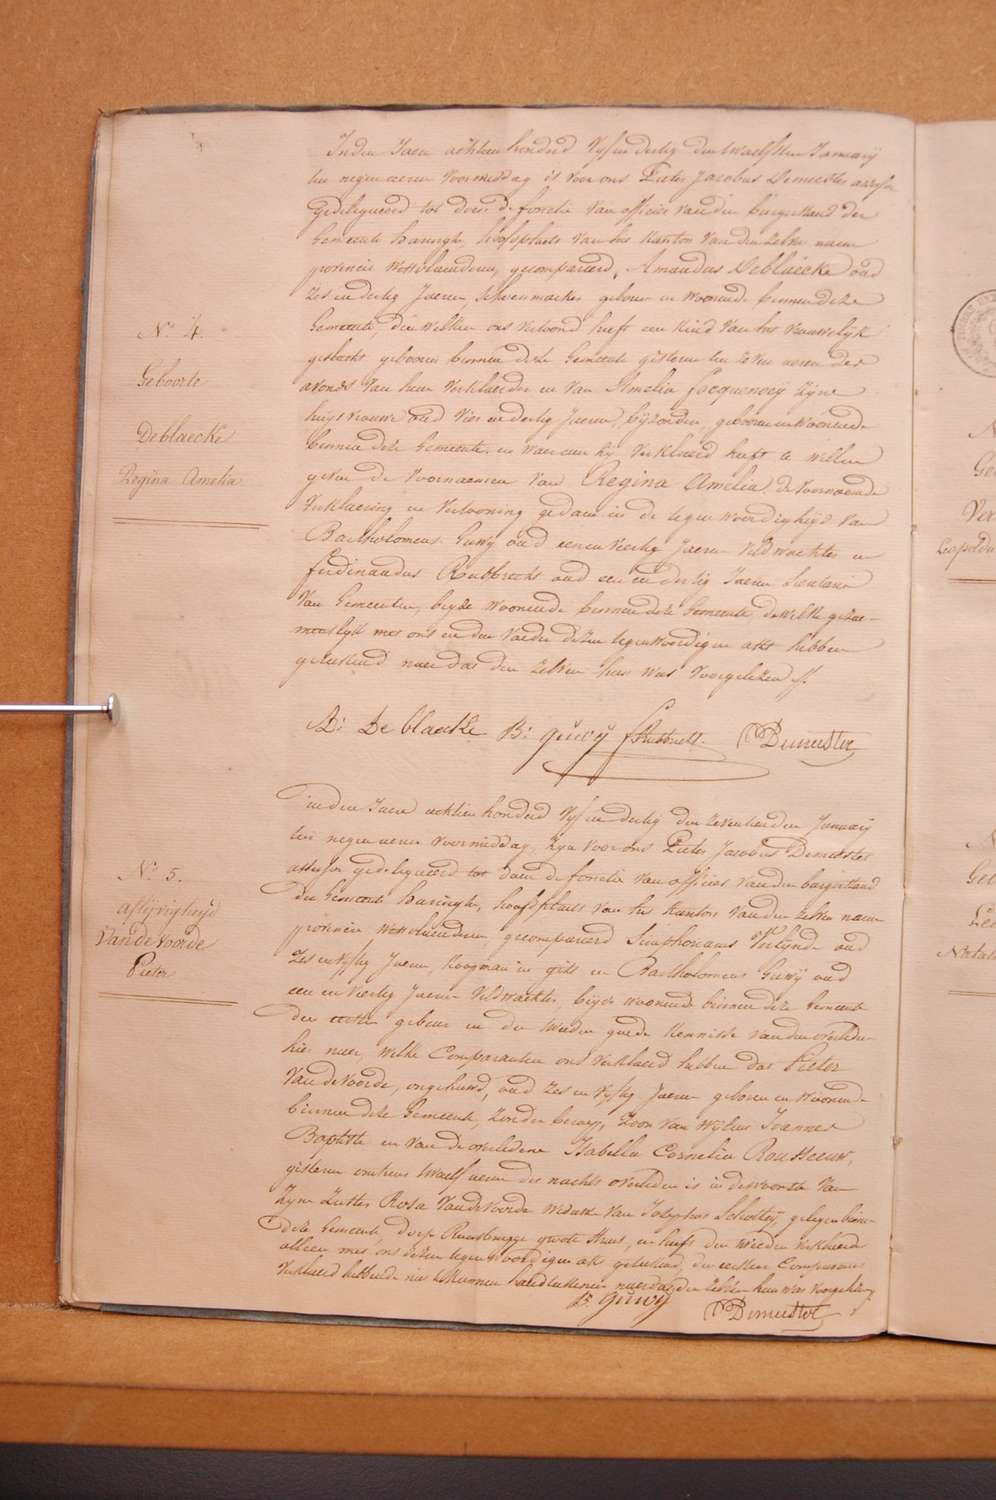 N.º 4.
Geboorte
Deblaecke
Regina Amelia
In den Jaere achttien honderd Vyf en dertig den twaelfsten January
ten negen ueren voormiddag is voor ons Pieter Jacobus Demeester assessor
Gedelegueerd tot doen de fonctie van officier van den burgerstand der
Gemeente haringh, hoofdplaets van het kanton van den zelven naem
provincie Westvlaenderen, gecompareerd, Amandus Deblaecke oud
Zes en dertig Jaeren, schoenmaeker geboren en woonende binnen deze
Gemeente, den welken ons vertoond heeft een kind van het vrouwelyk
geslacht geboren binnen deze Gemeente gisteren ten zeven ueren des
avonds van hem Verklaerder en van Amelia Hocquenoey zyne
huysvrouwe oud Vier en dertig Jaeren, geboren en woonende
binnen deze Gemeente, en waer aen hy verklaerd heeft te willen
geven de voornaemen van Regina Amelia, de voornoemde
Verklaering en Vertooning gedaen in de tegenwoordigheyd van
Bartholomeus Guwy oud een en veertig Jaeren Veldwachter en
Ferdinandus Rubbrecht oud een en dertig Jaeren
van Gemeenten, beyde woonende binnen deze Gemeente, dewelke gezae-
mentlyk met ons en den Vader dezen tegenwoordigen akt hebben
geteekend naer dat den zelven hun was voorgelezen //.
A: De blaecke B: guwy F Rubbrecht P Demeester
N.º 5.
aflyvigheyd
Vandevoorde
Pieter
In den Jaere achttien honderd Vyf en dertig den zeventienden January
ten negen ueren voormiddag, zyn voor ons Pieter Jacobus Demeester
assessor gedelegueerd tot doen de fonctie van officier van den burgerstand
der Gemeente haringh, hoofdplaets van het kanton van den zelven naem
provincie Westvlaenderen, gecompareerd Simphorianus Verlynde oud
Zes en vyftig Jaeren, koopman in gist en Bartholomeus Guwy oud
een en veertig Jaeren Veldwachter, beyde woonende binnen deze Gemeente
den eersten gebuer en den tweeden goede kennisse van den overleden
hier naer, welke Comparanten ons verklaerd hebben dat Pieter
Vandevoorde, ongehuwd, oud Zes en vyftig Jaeren geboren en woonende
binnen deze Gemeente, zonder beroep, zoon van wylent Joannes
Baptiste en van de overledene Isabella Cornelia Rousseeuw,
gisteren omtrent twaelf ueren des nachts overleden is in de woonste van
zyne zuster Rosa Vandevoorde weduwe van Josephus Schottey, gelegen binnen
deze Gemeente, dorp Rousbrugge groote straet, en heeft den tweeden verklaerder
alleen met ons dezen tegenwoordigen akt geteekend, den eersten Comparant
verklaerd hebbende niet te kunnen handteekenen naer dat den zelven hun was voorgelezen
B. guwy P Demeester